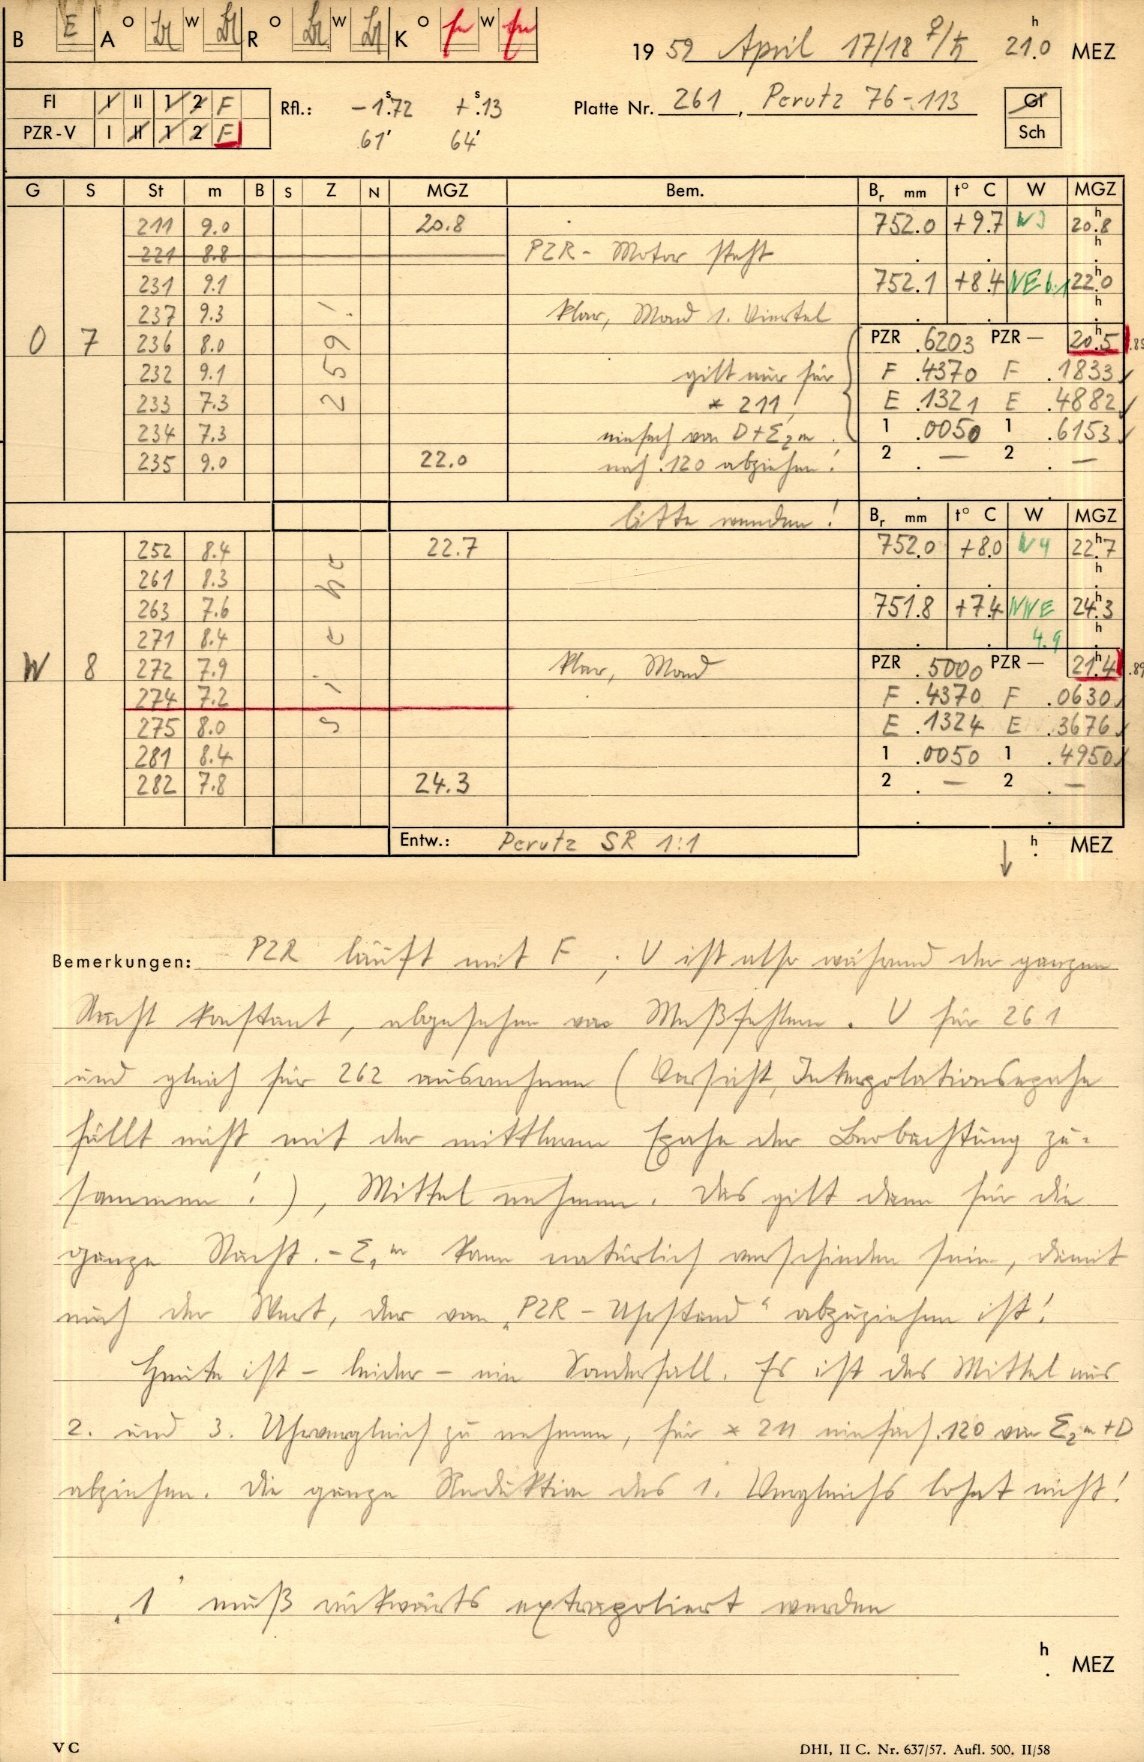 B E A o Br w Br R o Br w Br K o w
1959 April 17/18 ♀/♄ 21.0 h MEZ
FI I II 1 2 F
PZR-V I II 1 2 F
Rfl.: -1.s72 +.s13
61' 64'
Platte Nr. 261, Perutz 76-113
Gl
Sch
G S St m B S Z N MGZ Bem. Br mm t° C W MGZ
211 9.0 20.8 752.0 +9.7 W3 20.8 h
221 8.8 PZR-Motor steht h
231 9.1 752.1 +8.4 NE 6.1 22.0 h
237 9.3 klar, Mond 1. Viertel h
O 7 236 8.0 259! PZR .6203 PZR— 20.5 h .85
232 9.1 gilt nur für F .4370 F .1833
233 7.3 * 211! E .1321 E .4882
234 7.3 einfach von D+Σ2m 1 .0050 1 .6153
235 9.0 22.0 noch .120 abziehen! 2 — 2 —
bitte wenden! Br mm t° C W MGZ
252 8.4 22.7 752.0 +8.0 N4 22.7 h
261 8.3 h
263 7.6 751.8 +7.4 NNE 24.3 h
271 8.4 4.9 h
W 8 272 7.9 siche klar, Mond PZR .5000 PZR— 21.4 h .89
274 7.2 F .4370 F .0630
275 8.0 E .1324 E .3676
281 8.4 1 .0050 1 .4950
282 7.8 24.3 2 — 2 —
Entw.: Perutz SR 1:1 h MEZ
Bemerkungen: PZR läuft mit F; U ist also während der ganzen
Nacht konstant, abgesehen von Meßfehlern. U für 261
und gleich für 262 ausrechnen (Vorsicht, Interpolationsepoche
fällt nicht mit der mittleren Epoche der Beobachtung zu-
sammen!), Mittel nehmen. Das gilt dann für die
ganze Nacht. - Σ1m kann natürlich verschieden sein, damit
auch der Wert, der von „PZR-Uhrstand" abzuziehen ist!
Heute ist - leider - ein Sonderfall. Es ist das Mittel aus
2. und 3. Uhrvergleich zu nehmen, für * 211 einfach .120 von Σ2m+D
abziehen. Die ganze Reduktion des 1. Vergleichs lohnt nicht!
„1" muß rückwärts extrapoliert werden
h MEZ
VC
DHI, II C. Nr. 637/57. Aufl. 500. II/58